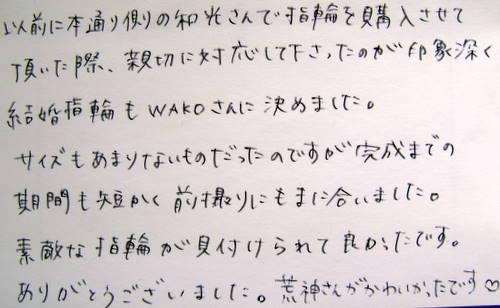 以前に本通り側の和光さんで指輪を購入させて
頂いた際、親切に対応して下さったのが印象深く
結婚指輪もWAKOさんに決めました。
サイズもあまりないものだったのですが完成までの
期間も短かく前撮りにもまに合いました。
素敵な指輪が見付けられて良かったです。
ありがとうございました。荒神さんがかわいかったです♡